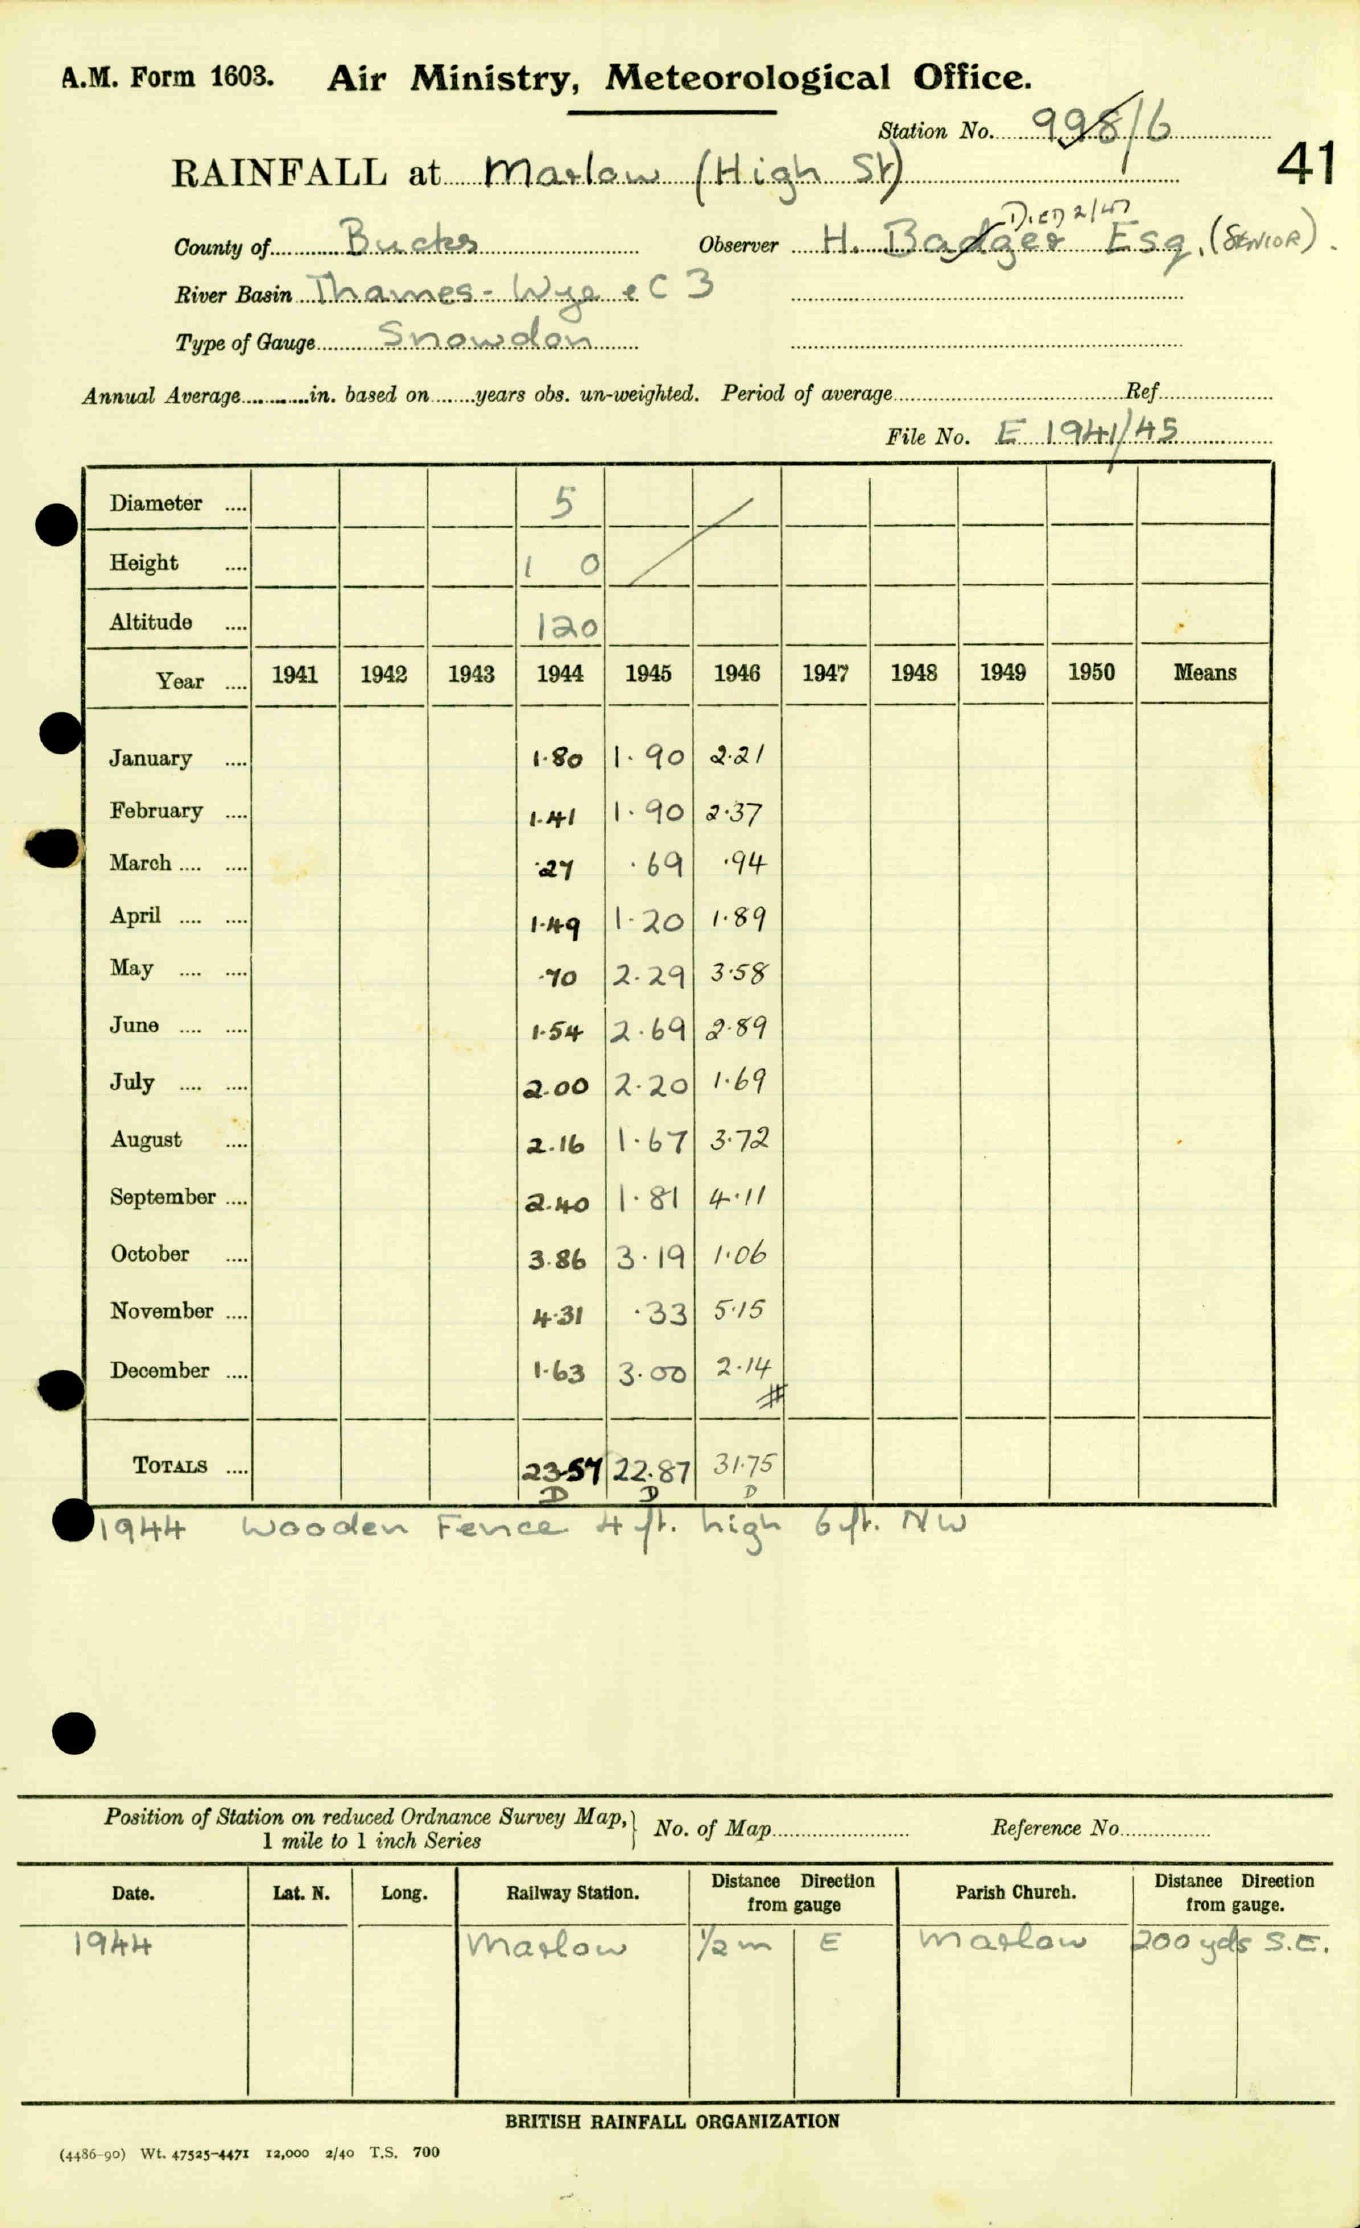 A.M. Form 1603. Air Ministry, Meteorological Office.
Station No. 998/6
41
RAINFALL at Marlow (High St)
DIED 2/47
County of Bucks Observer H. Badger Esq. (SENIOR).
River Basin Thames - Wye & C 3
Type of Gauge Snowdon
Annual Average in. based on years obs. un-weighted. Period of average Ref
File No. E 1941/45
Diameter 5
Height 1 0
Altitude 120
Year 1941 1942 1943 1944 1945 1946 1947 1948 1949 1950 Means
January 1.80 1.90 2.21
February 1.41 1.90 2.37
March .27 .69 .94
April 1.49 1.20 1.89
May .70 2.29 3.58
June 1.54 2.69 2.89
July 2.00 2.20 1.69
August 2.16 1.67 3.72
September 2.40 1.81 4.11
October 3.86 3.19 1.06
November 4.31 .33 5.15
December 1.63 3.00 2.14
#
TOTALS 23.57 22.87 31.75
D D D
1944 Wooden Fence 4 ft. high 6 ft. NW
Position of Station on reduced Ordnance Survey Map, } No. of Map Reference No
1 mile to 1 inch Series
Date. Lat. N. Long. Railway Station. Distance Direction from gauge Parish Church. Distance Direction from gauge.
1944 Marlow 1/2 m E Marlow 200 yds S.E.
BRITISH RAINFALL ORGANIZATION
(4486-90) Wt. 47525-4471 12,000 2/40 T.S. 700